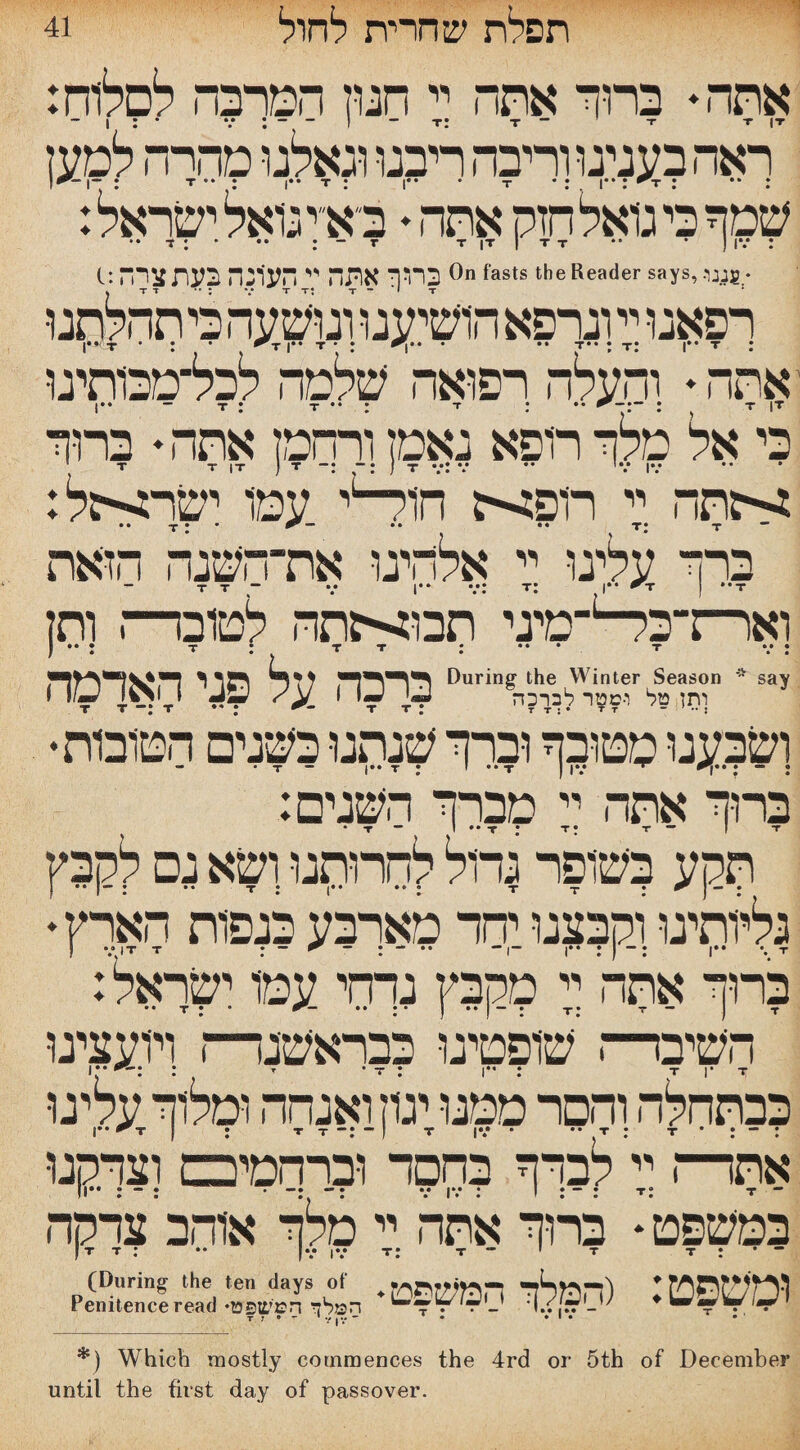 41 תפלת שחרית לחול
אַתָּה· בָּרוּךְ אַתָּה יְיָ חַנּוּן הַמַּרְבֶּה לִסְלוֹחַ:
רְאֵה בְעָנְיֵנוּ וְרִיבָה רִיבֵנוּ וּגְאָלֵנוּ מְהֵרָה לְמַעַן
שְׁמֶךָ כִּי גוֹאֵל חָזָק אַתָּה· בָּ״אַ״יְ גּוֹאֵל יִשְׂרָאֵל:
עֲנֵנוּ· On fasts the Reader says, בָּרוּךְ אַתָּה יְיָ הָעוֹנֶה בְּעֵת צָרָה:)
רְפָאֵנוּ יְיָ וְנֵרָפֵא הוֹשִׁיעֵנוּ וְנִוָּשֵׁעָה כִּי תְהִלָּתֵנוּ
אָתָּה· וְהַעֲלֵה רְפוּאָה שְׁלֵמָה לְכָל־מַכּוֹתֵינוּ
כִּי אֵל מֶלֶךְ רוֹפֵא נֶאֱמָן וְרַחֲמָן אָתָּה· בָּרוּךְ
אַתָּה יְיָ רוֹפֵא חוֹלֵי עַמּוֹ יִשְׂרָאֵל:
בָּרֵךְ עָלֵינוּ יְיָ אֱלֹהֵינוּ אֶת־הַשָּׁנָה הַזֹּאת
וְאֶת־כָּל־מִינֵי תְבוּאָתָהּ לְטוֹבָה וְתֵן
During the Winter Season * say וְתֵן טַל וּמָטָר לִבְרָכָה בְּרָכָה עַל פְּנֵי הָאֲדָמָה
וְשַׂבְּעֵנוּ מִטּוּבֶךָ וּבָרֵךְ שְׁנָתֵנוּ כַּשָּׁנִים הַטּוֹבוֹת·
בָּרוּךְ אַתָּה יְיָ מְבָרֵךְ הַשָּׁנִים:
תְּקַע בְּשׁוֹפָר גָּדוֹל לְחֵרוּתֵנוּ וְשָׂא נֵס לְקַבֵּץ
גָּלֻיּוֹתֵינוּ וְקַבְּצֵנוּ יַחַד מֵאַרְבַּע כַּנְפוֹת הָאָרֶץ·
בָּרוּךְ אַתָּה יְיָ מְקַבֵּץ נִדְחֵי עַמּוֹ יִשְׂרָאֵל:
הָשִׁיבָה שׁוֹפְטֵינוּ כְּבָרִאשׁנָה וְיוֹעֲצֵינוּ
כְּבַתְּחִלָּה וְהָסֵר מִמֶּנּוּ יָגוֹן וַאֲנָחָה וּמְלוֹךְ עָלֵינוּ
אַתָּה יְיָ לְבַדְּךָ בְּחֶסֶד וּבְרַחֲמִים וְצַדְּקֵנוּ
בַּמִּשְׁפָּט· בָּרוּךְ אַתָּה יְיָ מֶלֶךְ אוֹהֵב צְדָקָה
וּמִשְׁפָּט: (הַמֶּלֶךְ הַמִּשְׁפָּט· (During the ten days of
Penitence read הַמֶּלֶךְ הַמִּשְׁפָּט·
*) Which mostly commences the 4rd or 5th of December
until the first day of passover.